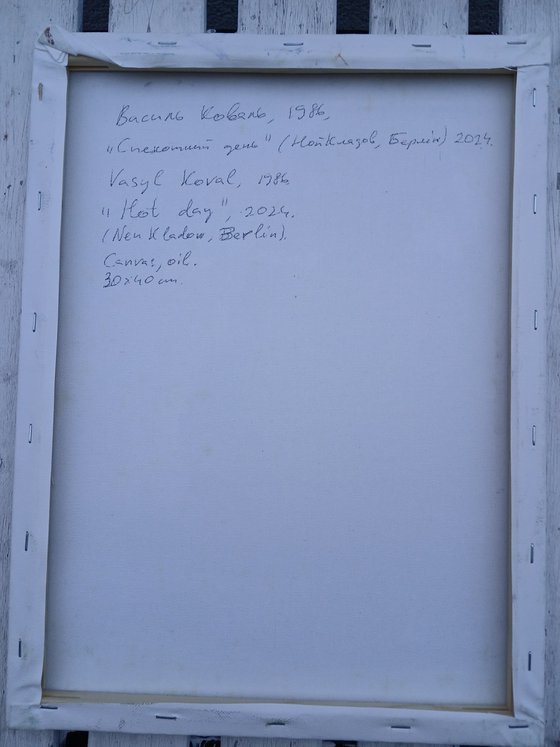 Василь Коваль, 1986,
„Спекотний день" (НойКладов, Берлін) 2024.
Vasyl Koval, 1986
„Hot day", 2024.
(Neu Kladow, Berlin).
Canvas, oil.
30x40 cm